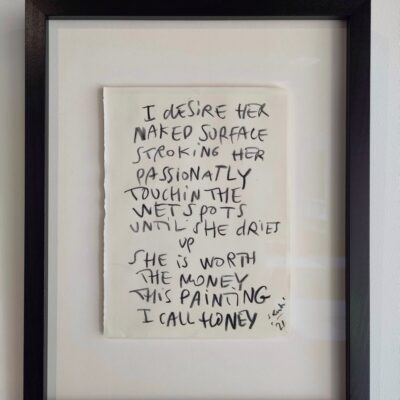 I DESIRE HER
NAKED SURFACE
STROKING HER
PASSIONATLY
TOUCHIN THE
WET SPOTS
UNTIL SHE DRIES
UP
SHE IS WORTH
THE MONEY
THIS PAINTING
I CALL HONEY
'21